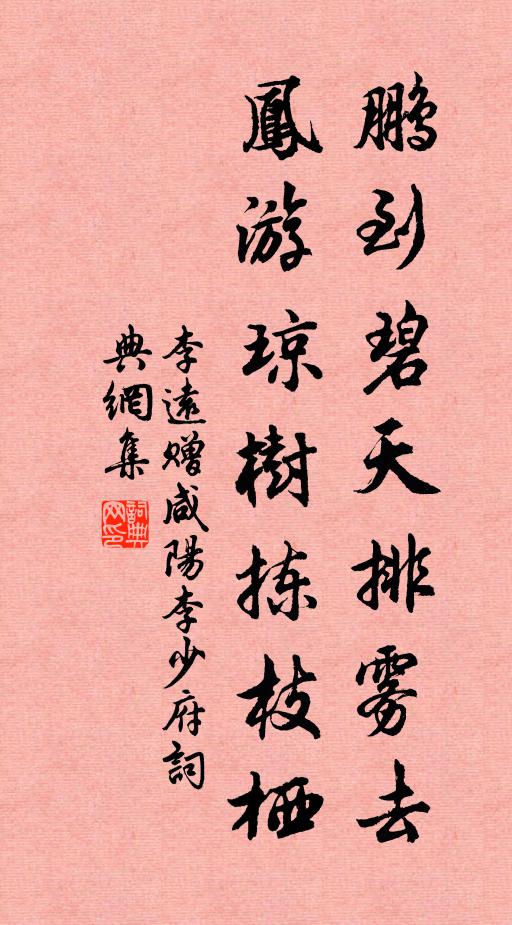 鹏到碧天排雾去
鳳游琼樹拣枝栖
李遠赠咸陽李少府詞
典網集
詞典网印